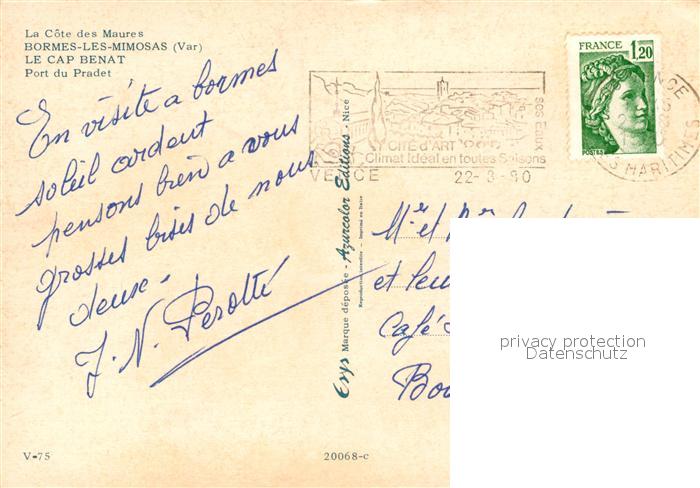 La Côte des Maures
BORMES-LES-MIMOSAS (Var)
LE CAP BENAT
Port du Pradet
En visite a bormes
soleil ardent
pensons bien a vous
grosses bises de nous
deux.
J. N. Perotté
V-75
20068-c
Eryr Marque déposée - Azurcolor Editions - Nice
Reproduction interdite - Imprimé en Italie
CITÉ D'ART
Climat Idéal en toutes Saisons
SES EAUX
VENCE 22-3-80
FRANCE
1,20
POSTES
VENCE
MARITIMES
Mr et
et leur
Café
privacy protection
Datenschutz